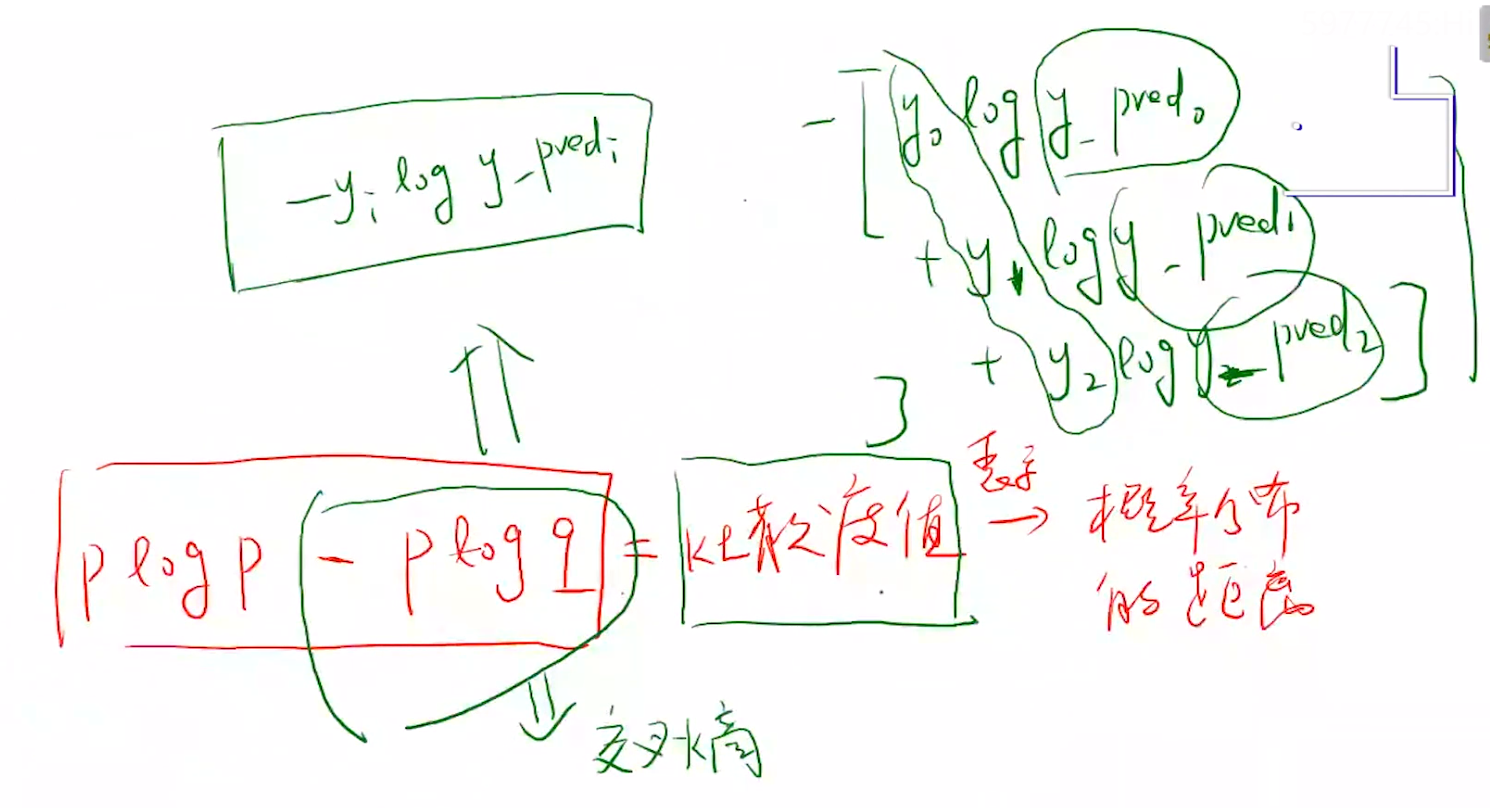 -y_i log y_pred_i
-[y_0 log y_pred_0
+ y_1 log y_pred_1
+ y_2 log y_pred_2]
p log p - p log q = KL散度值
表示
→ 概率分布
的距离
交叉熵